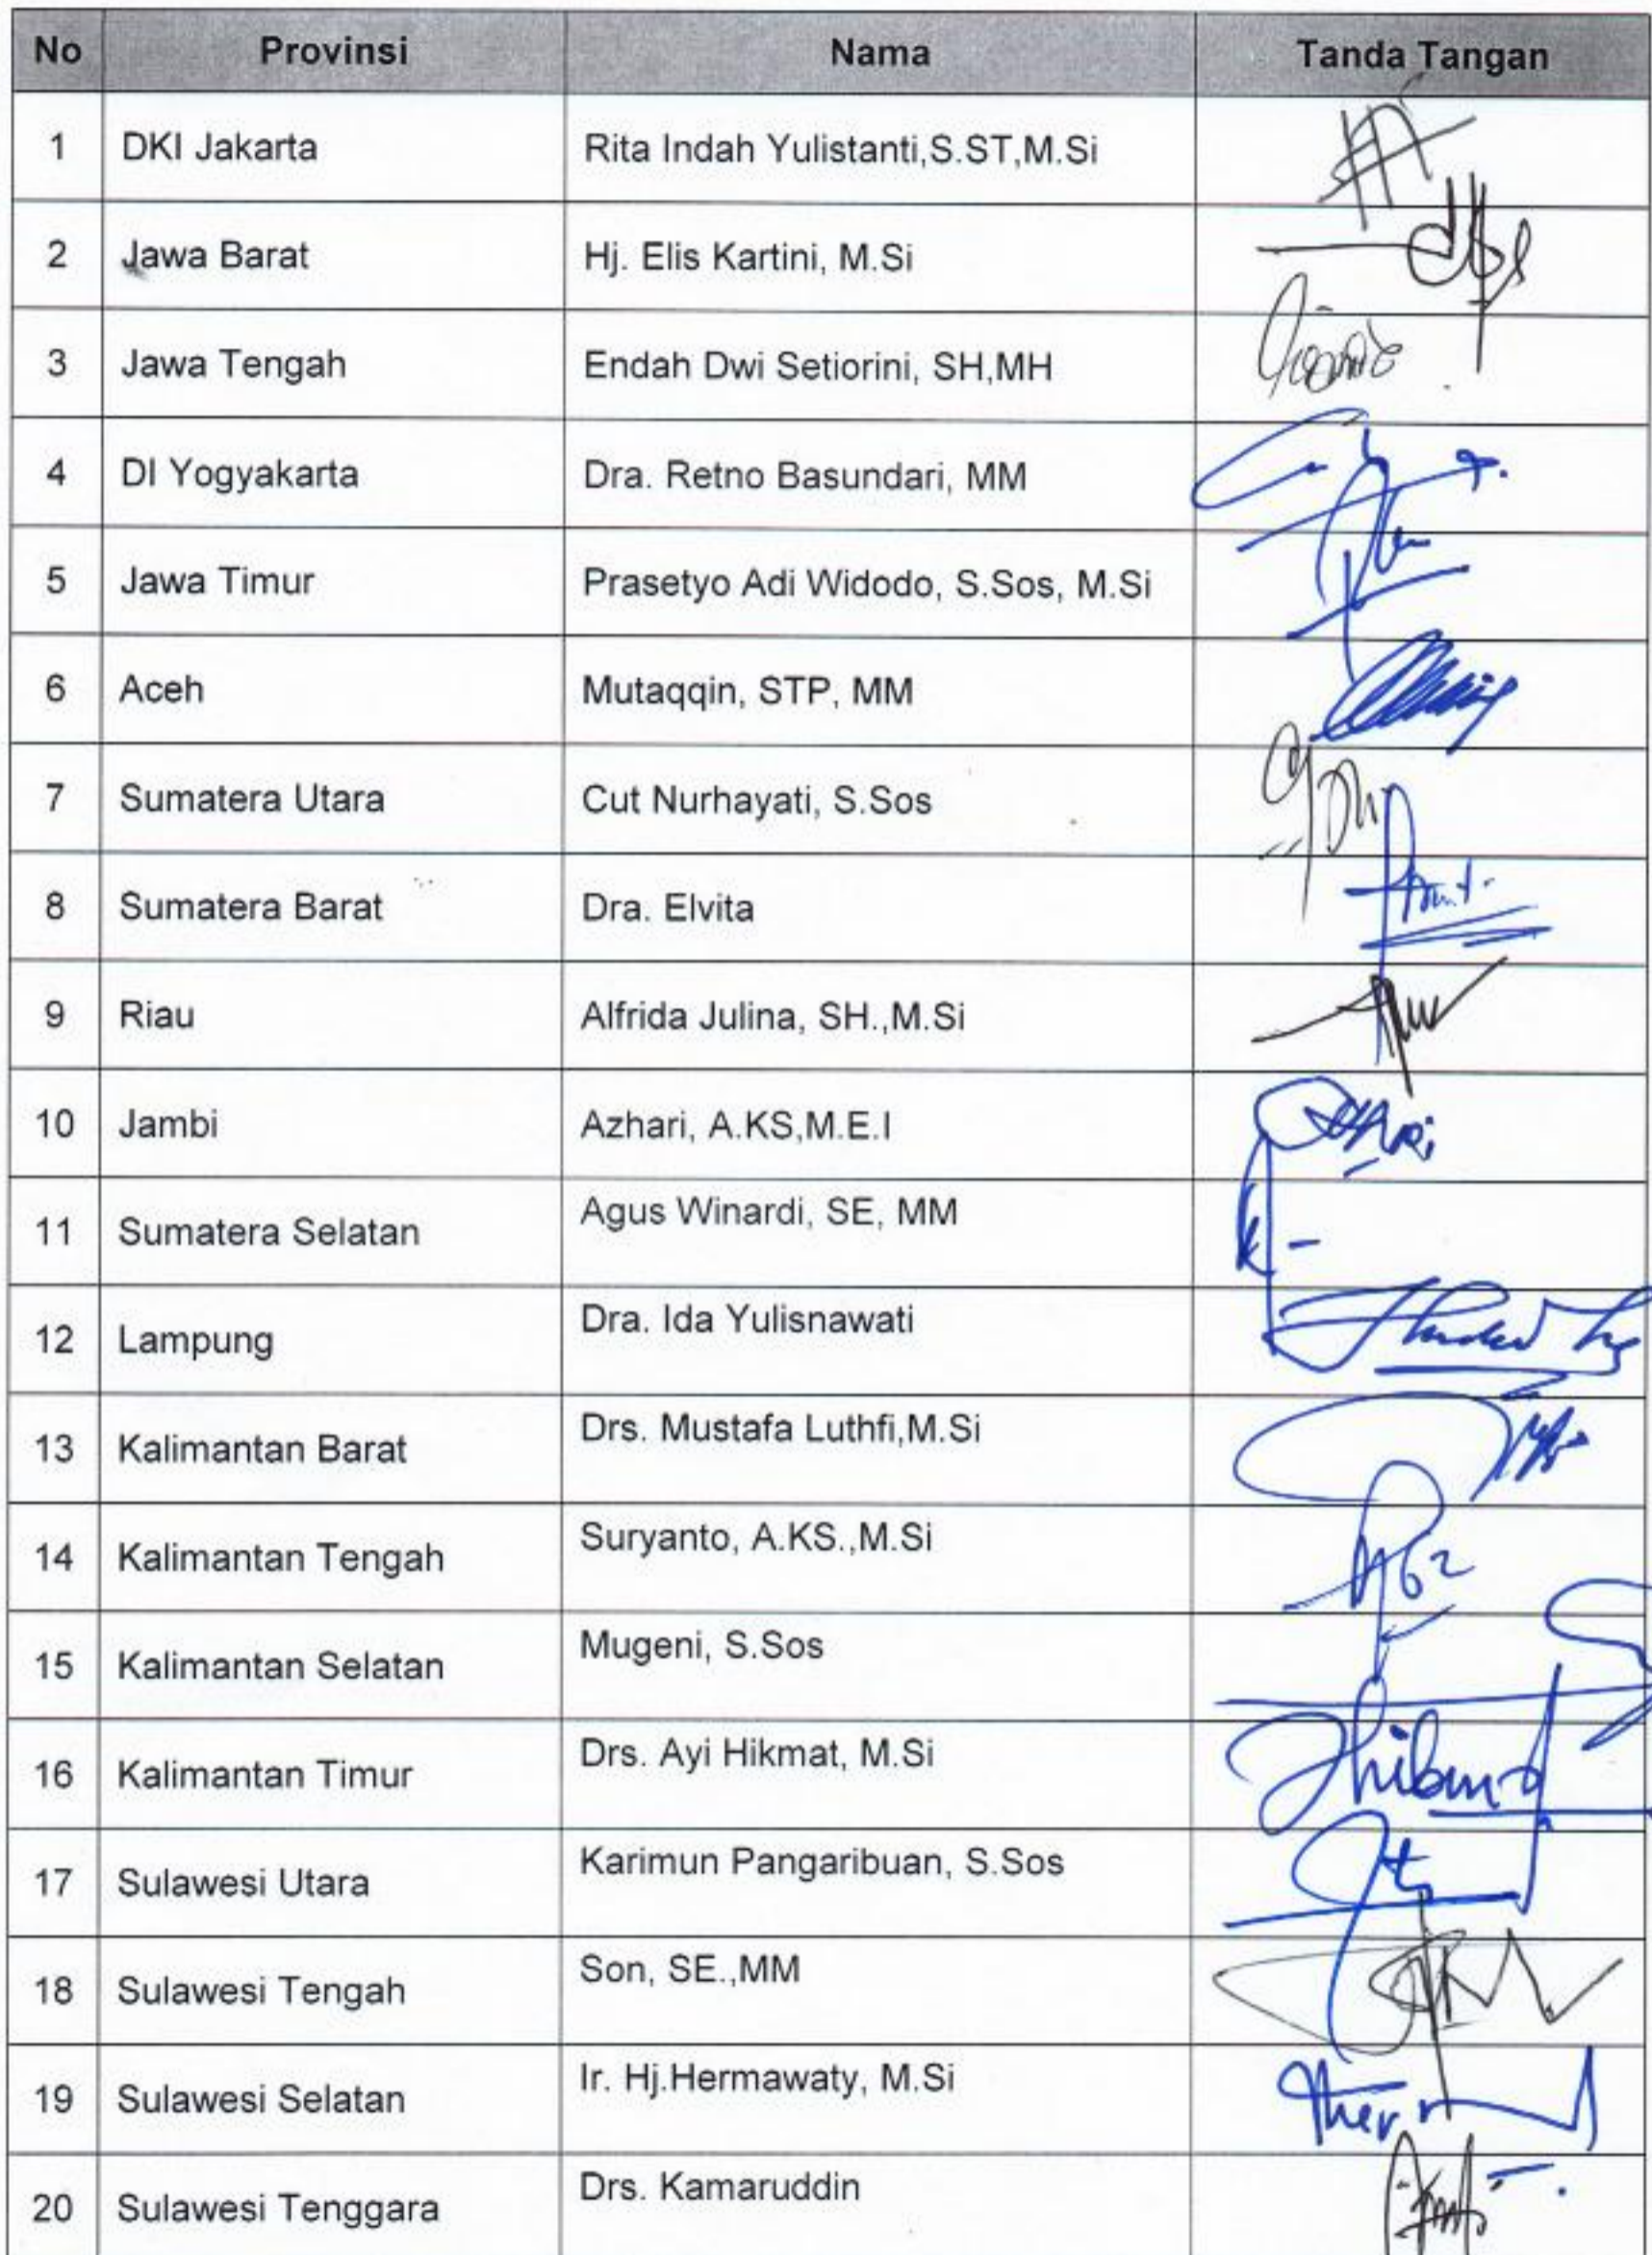 No Provinsi Nama Tanda Tangan
1 DKI Jakarta Rita Indah Yulistanti,S.ST,M.Si
2 Jawa Barat Hj. Elis Kartini, M.Si
3 Jawa Tengah Endah Dwi Setiorini, SH,MH
4 DI Yogyakarta Dra. Retno Basundari, MM
5 Jawa Timur Prasetyo Adi Widodo, S.Sos, M.Si
6 Aceh Mutaqqin, STP, MM
7 Sumatera Utara Cut Nurhayati, S.Sos
8 Sumatera Barat Dra. Elvita
9 Riau Alfrida Julina, SH.,M.Si
10 Jambi Azhari, A.KS,M.E.I
11 Sumatera Selatan Agus Winardi, SE, MM
12 Lampung Dra. Ida Yulisnawati
13 Kalimantan Barat Drs. Mustafa Luthfi,M.Si
14 Kalimantan Tengah Suryanto, A.KS.,M.Si
15 Kalimantan Selatan Mugeni, S.Sos
16 Kalimantan Timur Drs. Ayi Hikmat, M.Si
17 Sulawesi Utara Karimun Pangaribuan, S.Sos
18 Sulawesi Tengah Son, SE.,MM
19 Sulawesi Selatan Ir. Hj.Hermawaty, M.Si
20 Sulawesi Tenggara Drs. Kamaruddin